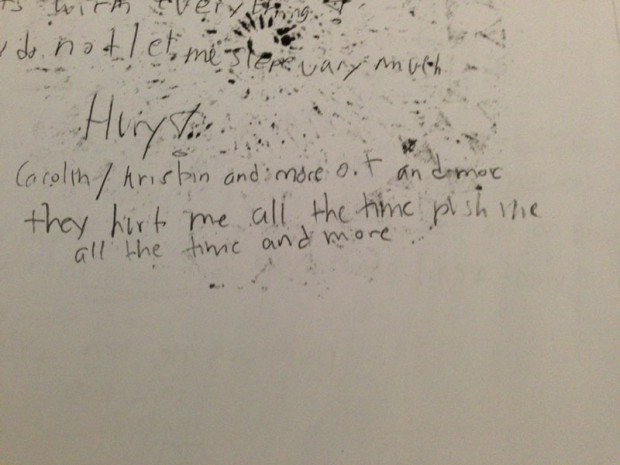 with every thing
do not let me slepe vary much
Huryst..
Carolin/ krisbin and more o.f and mor
they hurt me all the time push me
all the time and more...